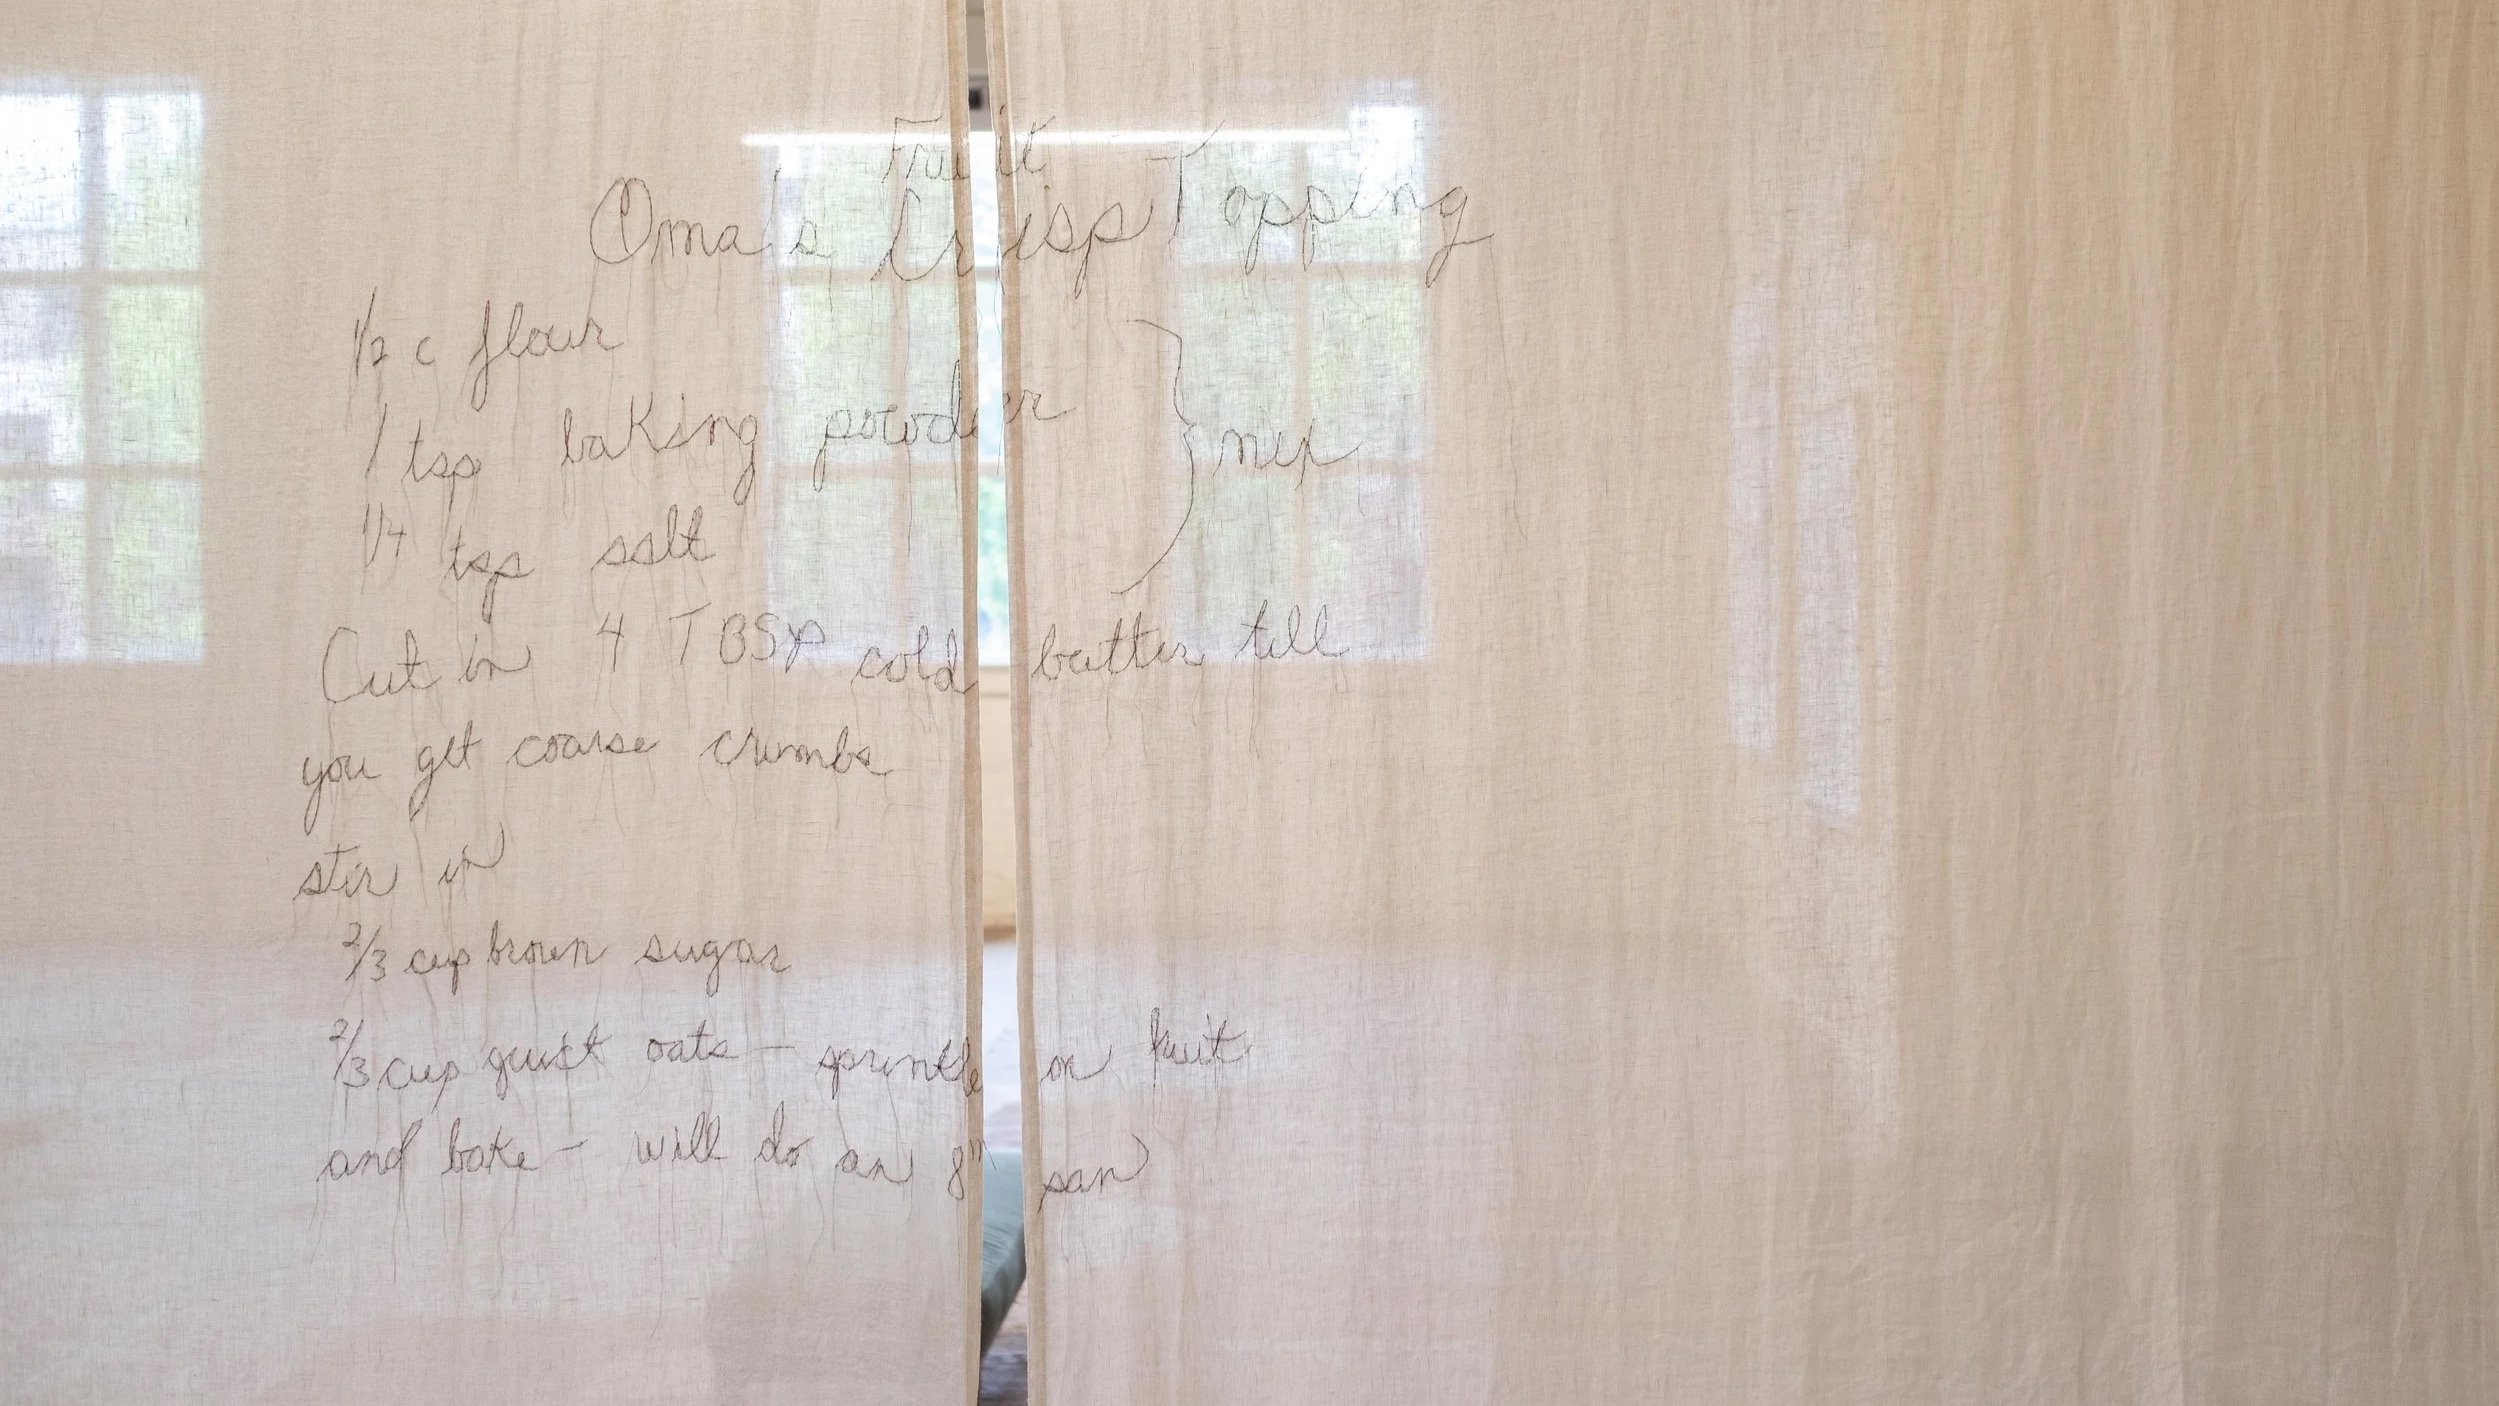 Fruit
Oma's Crisp Topping
1/2 c flour
1 tsp baking powder
} mix
1/4 tsp salt
Cut in 4 TBSP cold butter till
you get coarse crumbs
stir in
2/3 cup brown sugar
2/3 cup quick oats — sprinkle on fruit
and bake — will do an 8" pan